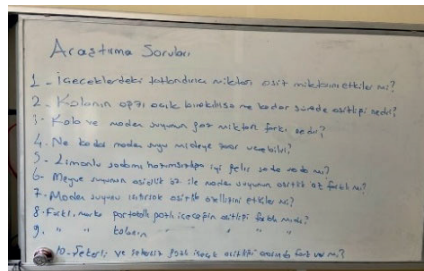 Araştırma Soruları
1- İçeceklerdeki tatlandırıcı miktarı asit miktarını etkiler mi?
2- Kolanın ağzı açık bırakılırsa ne kadar sürede asitliği
3- Kola ve maden suyunun gaz miktarı farkı nedir?
4. Ne kadar maden suyu mideye zarar verebilir?
5- Limonlu sodamı iyi gelir sade soda mı?
6- Meyve suyunun asidlik ile maden suyunun farklı mı?
7. Maden suyunu ısıtırsak asitlik özelliğini etkiler mi?
8. Farklı marka portakallı içeceğin asitliği farklı mıdır?
9. " " kolanın " " "
10. Şekerli ve şekersiz içecek asitliği arasında fark var mı?